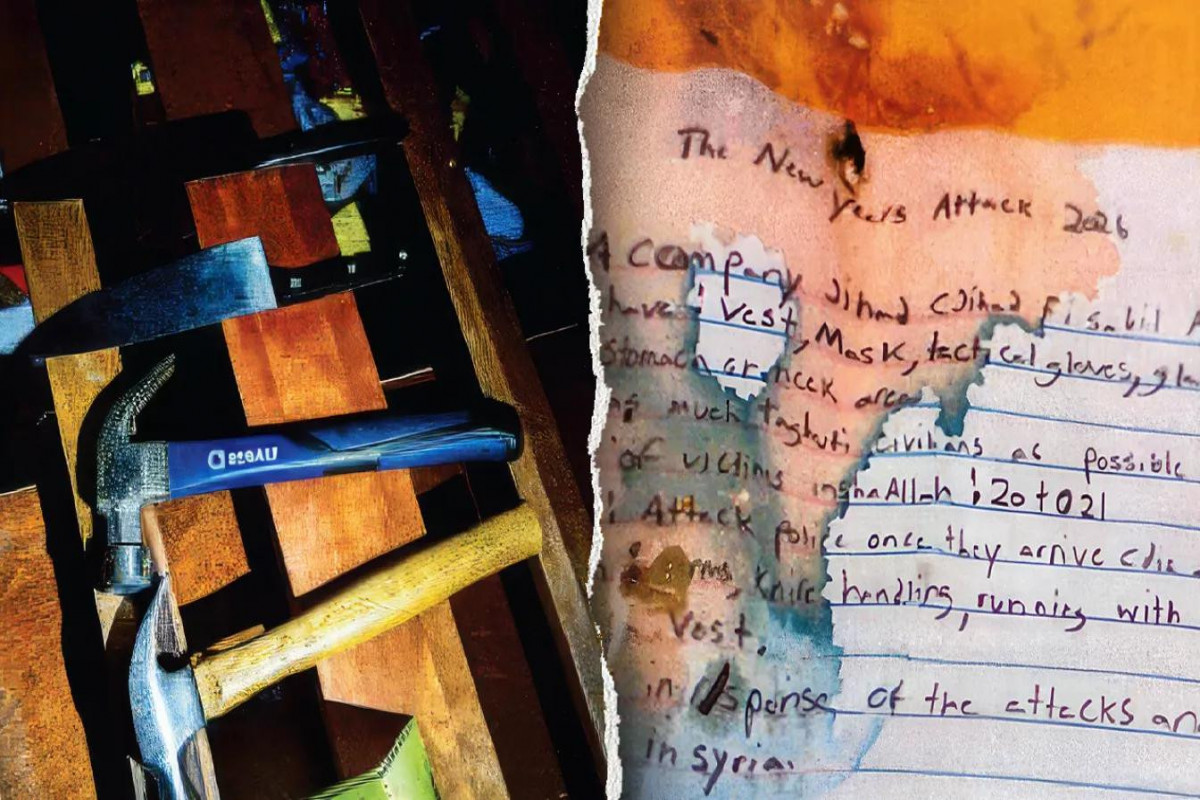 The New Years Attack 2026
A Company Jihad (Jihad Fisabil
have 1 Vest, Mask, tactical gloves,
stomach or neck area
much taghuti civilians as possible
of victims inshaAllah : 20 to 21
Attack police once they arrive
Knife handling, running with
Vest.
in of the attacks
in syria.